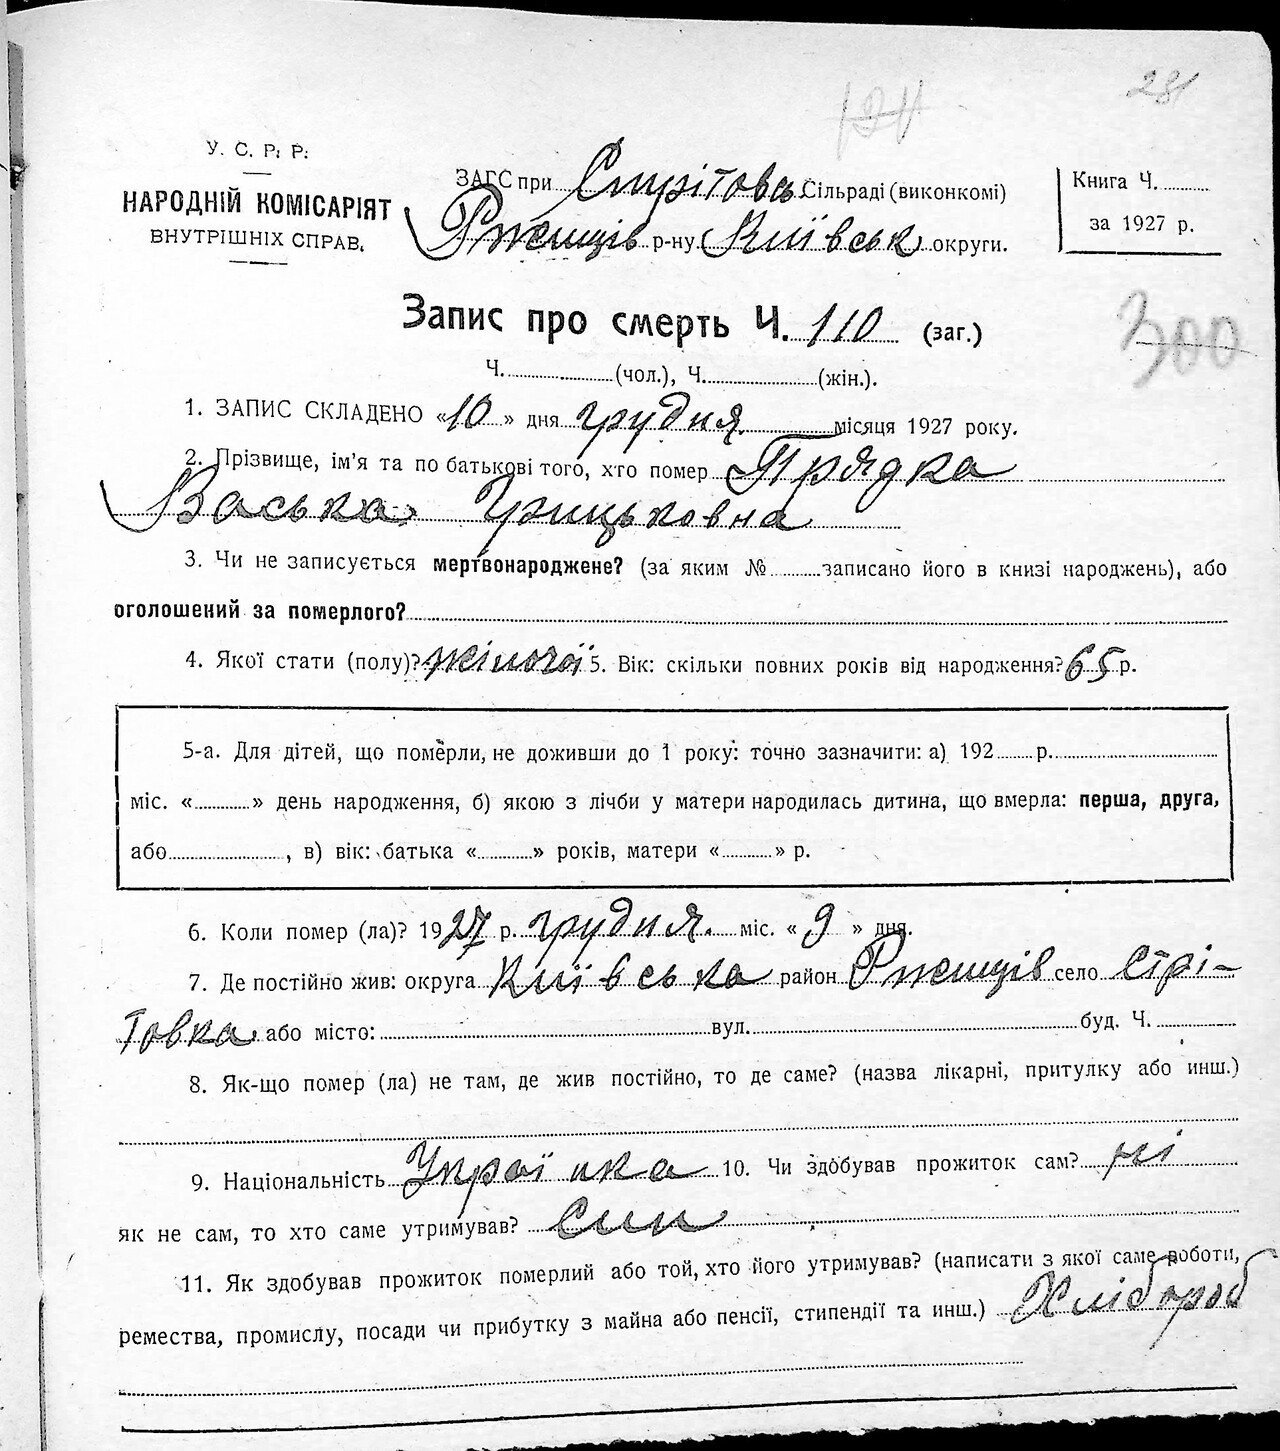 281
131
У. С. Р. Р.
НАРОДНІЙ КОМІСАРІЯТ
ВНУТРІШНІХ СПРАВ.
ЗАГС при Стрітовс Сільраді (виконкомі)
Ржищів р-ну Київськ округи.
Книга Ч.
за 1927 р.
Запис про смерть Ч. 110 (заг.)
300
Ч. (чол.), Ч. (жін.).
1. ЗАПИС СКЛАДЕНО «10» дня грудня місяця 1927 року.
2. Прізвище, ім'я та по батькові того, хто помер Прядка
Васька Грицьковна
3. Чи не записується мертвонароджене? (за яким № записано його в книзі народжень), або
оголошений за померлого?
4. Якої стати (полу)? жіночої 5. Вік: скільки повних років від народження? 65 р.
5-а. Для дітей, що померли, не доживши до 1 року: точно зазначити: а) 192 р.
міс. « » день народження, б) якою з лічби у матери народилась дитина, що вмерла: перша, друга,
або , в) вік: батька « » років, матери « » р.
6. Коли помер (ла)? 1927 р. грудня. міс. «9» дня.
7. Де постійно жив: округа Київська район Ржищів село Стрі-
товка або місто: вул. буд. Ч.
8. Як-що помер (ла) не там, де жив постійно, то де саме? (назва лікарні, притулку або инш.)
9. Національність Украї нка 10. Чи здобував прожиток сам? ні
як не сам, то хто саме утримував? Син
11. Як здобував прожиток померлий або той, хто його утримував? (написати з якої саме роботи,
ремества, промислу, посади чи прибутку з майна або пенсії, стипендії та инш.) Хлібороб